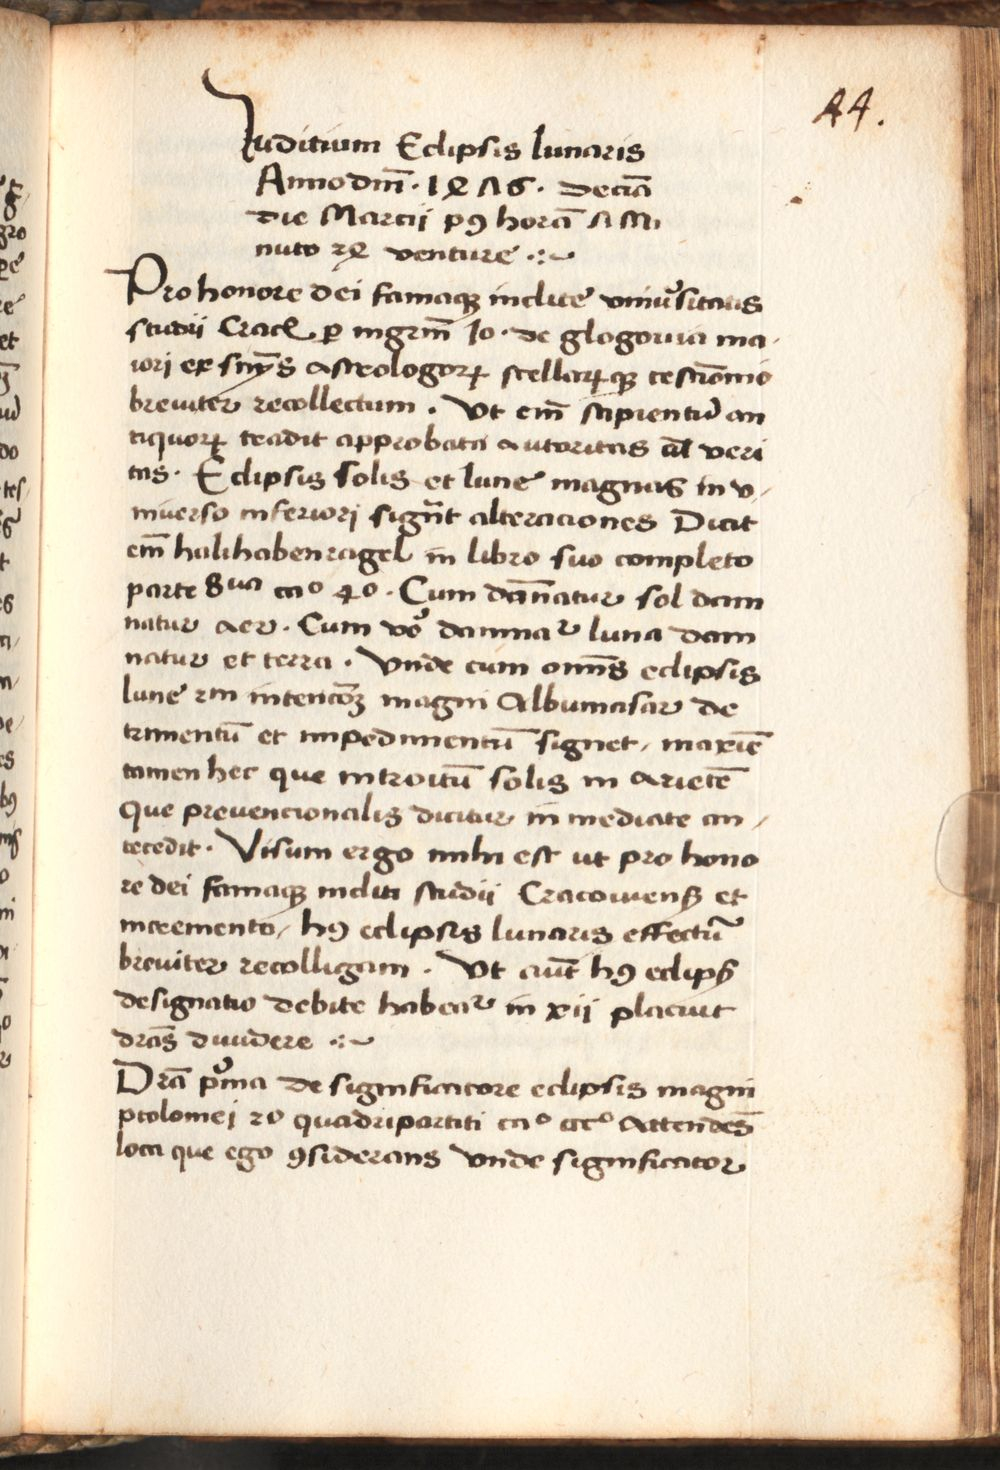 44.
Iuditium Eclipsis lunaris
Anno dm̄ · 1476 · deciā
die Marcij pꝰ horā 7 Mi
nuto 24 venture
Pro honore dei famaqꝫ inclite vniuʼsitatis
studii Crac ꝑ mgrm̄ Io · de glogouia ma-
iori ex astrologoꝝ stellarūqꝫ testiōnio
breuiter recollectum . Vt em̄ sapientiū an
tiquoꝝ tradit approbata autoritas veri
tas · Eclipsis solis et lune magnas in v-
niuerso inferiori signn̄t alteraciones Dicit
em̄ halihabenragel in libro suo completo
parte 8ua caº 4º . Cum dānatur sol dam
natur aer . Cum vºo damnaʳ luna dam
natur et terra . Vnde cum omīs eclipsis
lune intencōꝫ magni Albumasar de
trimentū et impedimentū signet , maxīe
tamen hec que introitū solis in Arietē
Que prevencionalis dicitur in mediate an-
tecedit . Visum ergo mihi est ut pro hono
re dei famaqꝫ incliti studii Cracouiensꝫ et
incremento, hꝰ eclipsis lunaris effectū
breuiter recolligam . Vt aut̄ hꝰ eclips
designatio debite habeaʳ in xii placuit
drās diuidere
Drā pʼma de significatore eclipsis magni
ptolomej 2º quadripartiti caº Attendēs
loca que ego ꝯsiderans vnde significator